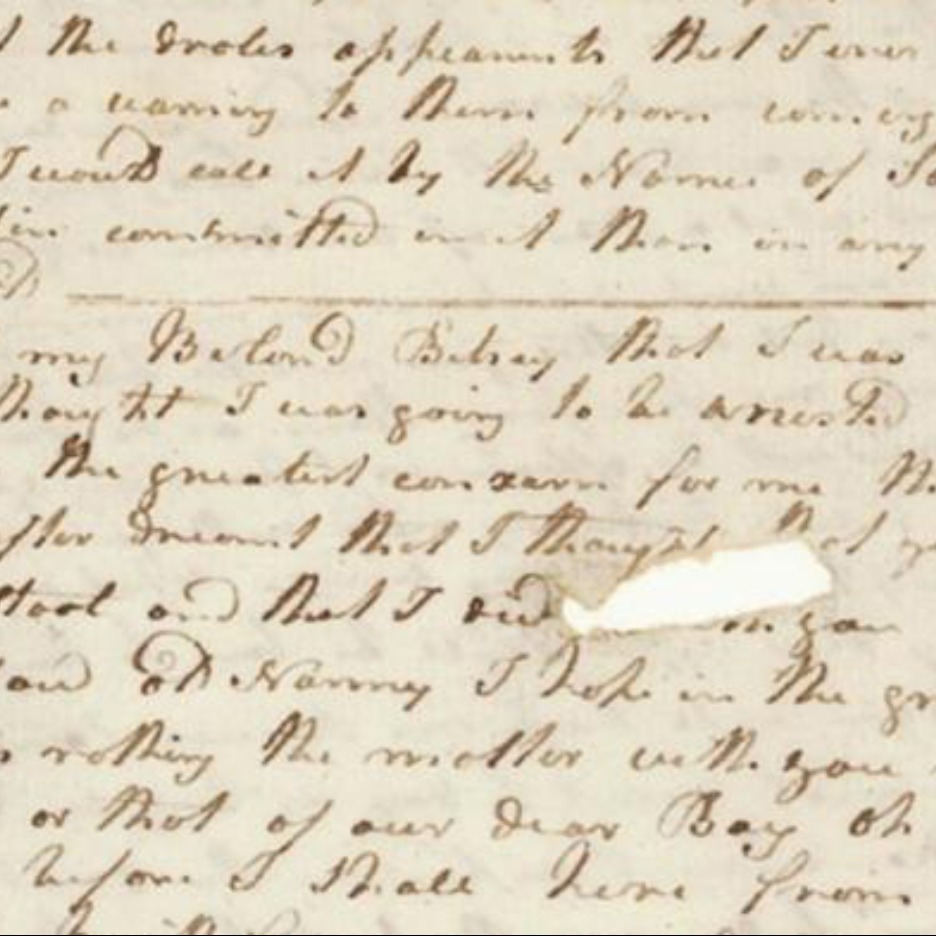 the droles appearants that I ever
a warning to them from coming
I would call it by the Name of
committed in it than in any
my Belovd Betsey that I was
thought I was going to be arrested
the greatest conzarn for me
after dreamt that I thought
stool and that I did you
and old Nanney I hope in the
nothing the matter with you
or that of our dear Boy oh
before I shall here from